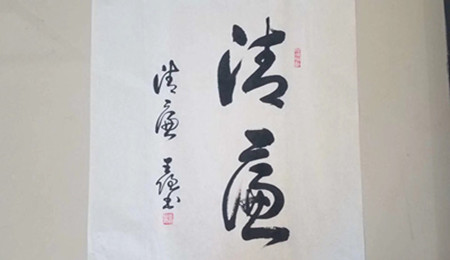 清廉
清廉